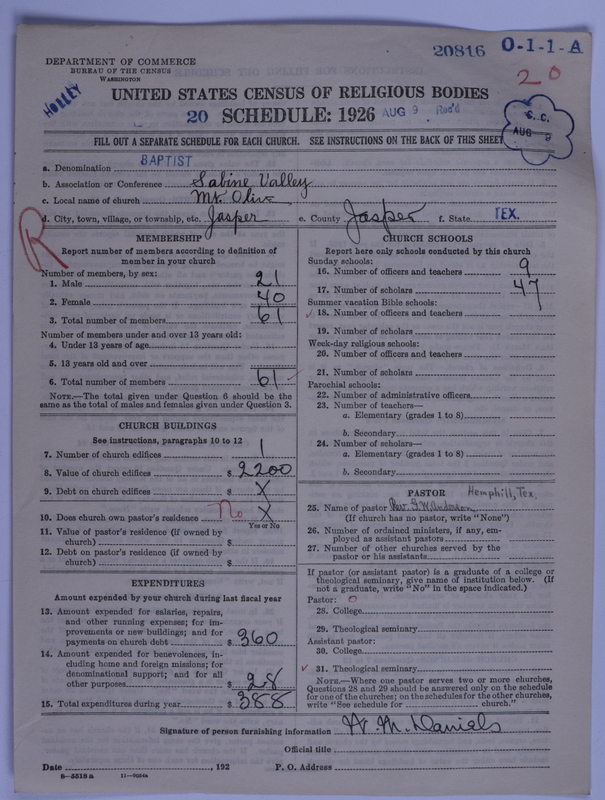 20816 O-1-1-A
DEPARTMENT OF COMMERCE
BUREAU OF THE CENSUS
WASHINGTON
20
HOLLEY
UNITED STATES CENSUS OF RELIGIOUS BODIES
20 SCHEDULE: 1926 AUG 9 Rec'd
S. C.
AUG 9
FILL OUT A SEPARATE SCHEDULE FOR EACH CHURCH. SEE INSTRUCTIONS ON THE BACK OF THIS SHEET
a. Denomination BAPTIST
b. Association or Conference Sabine Valley
c. Local name of church Mt. Olive
d. City, town, village, or township, etc. Jasper e. County Jasper f. State TEX.
R
MEMBERSHIP
Report number of members according to definition of
member in your church
Number of members, by sex:
1. Male 21
2. Female 40
3. Total number of members 61
Number of members under and over 13 years old:
4. Under 13 years of age
5. 13 years old and over
6. Total number of members 61
NOTE.—The total given under Question 6 should be the
same as the total of males and females given under Question 3.
CHURCH BUILDINGS
See instructions, paragraphs 10 to 12
7. Number of church edifices 1
8. Value of church edifices $ 2200
9. Debt on church edifices $ X
10. Does church own pastor's residence No X
Yes or No
11. Value of pastor's residence (if owned by
church) $
12. Debt on pastor's residence (if owned by
church) $
EXPENDITURES
Amount expended by your church during last fiscal year
13. Amount expended for salaries, repairs,
and other running expenses; for im-
provements or new buildings; and for
payments on church debt $ 360
14. Amount expended for benevolences, in-
cluding home and foreign missions; for
denominational support; and for all
other purposes $ 28
15. Total expenditures during year $ 388
CHURCH SCHOOLS
Report here only schools conducted by this church
Sunday schools:
16. Number of officers and teachers 9
17. Number of scholars 47
Summer vacation Bible schools:
✓ 18. Number of officers and teachers
19. Number of scholars
Week-day religious schools:
20. Number of officers and teachers
21. Number of scholars
Parochial schools:
22. Number of administrative officers
23. Number of teachers—
a. Elementary (grades 1 to 8)
b. Secondary
24. Number of scholars—
a. Elementary (grades 1 to 8)
b. Secondary
PASTOR Hemphill, Tex.
25. Name of pastor Rev.
(If church has no pastor, write "None")
26. Number of ordained ministers, if any, em-
ployed as assistant pastors
27. Number of other churches served by the
pastor or his assistants
If pastor (or assistant pastor) is a graduate of a college or
theological seminary, give name of institution below. (If
not a graduate, write "No" in the space indicated.)
Pastor: 0
28. College
29. Theological seminary
Assistant pastor:
30. College
✓ 31. Theological seminary
NOTE.—Where one pastor serves two or more churches,
Questions 28 and 29 should be answered only on the schedule
for one of the churches; on the schedules for the other churches,
write "See schedule for church."
Signature of person furnishing information W. M. Daniels
Official title
Date , 192 P. O. Address
8—5518 a